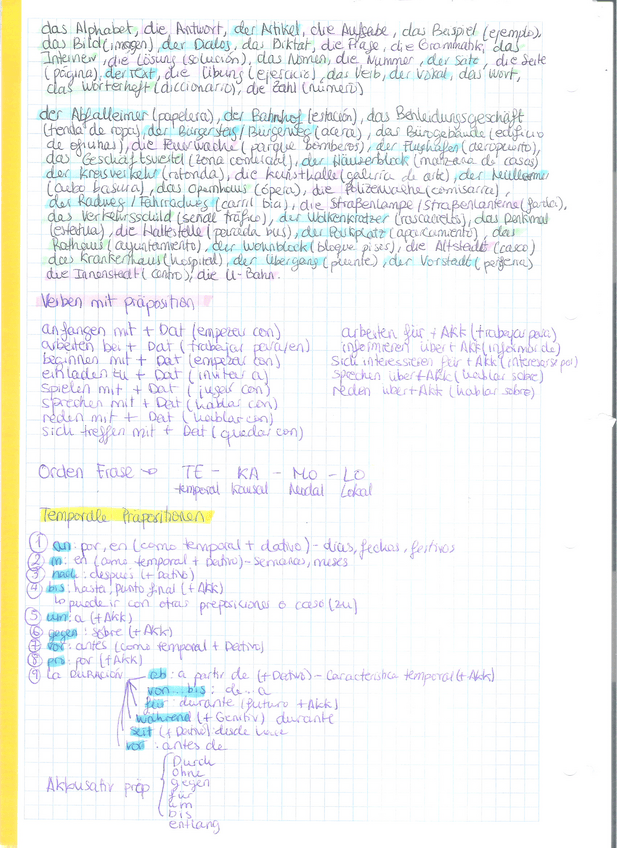 das Alphabet, die Antwort, der Artikel, die Aufgabe, das Beispiel (ejemplo),
das Bild (imagen), der Dialog, das Diktat, die Frage, die Grammatik, das
Interview, die Lösung (solución), das Nomen, die Nummer, der Satz, die Seite
(página), der Text, die Übung (ejercicio), das Verb, der Vokal, das Wort,
das Wörterheft (diccionario), die Zahl (número)
der Abfalleimer (papelera), der Bahnhof (estación), das Bekleidungsgeschäft
(tienda de ropa), der Bürgersteig / Bürgerweg (acera), das Bürogebäude (edificio
de oficinas), die Feuerwache (parque bomberos), der Flughafen (aeropuerto),
das Geschäftsviertel (zona comercial), der Häuserblock (manzana de casas)
der Kreisverkehr (rotonda), die Kunsthalle (galería de arte), der Mülleimer
(cubo basura), das Opernhaus (ópera), die Polizeiwache (comisaría),
der Radweg / Fahrradweg (carril bici), die Straßenlampe / Straßenlanterne (farola),
das Verkehrsschild (señal tráfico), der Wolkenkratzer (rascacielos), das Denkmal
(estatua), die Haltestelle (parada bus), der Parkplatz (aparcamiento), das
Rathaus (ayuntamiento), der Wohnblock (bloque pisos), die Altstadt (casco)
das Krankenhaus (hospital), der Übergang (puente), der Vorstadt (periferia)
die Innenstadt (centro), die U-Bahn.
Verben mit präposition
anfangen mit + Dat (empezar con)
arbeiten für + Akk (trabajar para)
arbeiten bei + Dat (trabajar para/en)
informieren über + Akk (informar de)
beginnen mit + Dat (empezar con)
sich interessieren für + Akk (interesarse por)
einladen zu + Dat (invitar a)
sprechen über + Akk (hablar sobre)
spielen mit + Dat (jugar con)
reden über + Akk (hablar sobre)
sprechen mit + Dat (hablar con)
reden mit + Dat (hablar con)
sich treffen mit + Dat (quedar con)
Orden Frase → TE - KA - MO - LO
temporal Kausal Modal Lokal
Temporale Präpositionen
① an: por, en (como temporal + dativo) - días, fechas, festivos
② in: en (como temporal + Dativo) - semanas, meses
③ nach: después (+ Dativo)
④ bis: hasta, punto final (+ Akk)
↳ puede ir con otras preposiciones o caso (zu)
⑤ um: a (+ Akk)
⑥ gegen: sobre (+ Akk)
⑦ vor: antes (como temporal + Dativo)
⑧ pro: por (+ Akk)
⑨ La DURACIÓN
ab: a partir de (+ Dativo) - Característica temporal (+ Akk)
von... bis: de... a
für: durante (futuro + Akk)
während (+ Genitiv) durante
seit (+ Dativo) desde
vor: antes de
Akkusativ präp
Durch
ohne
gegen
für
um
bis
entlang